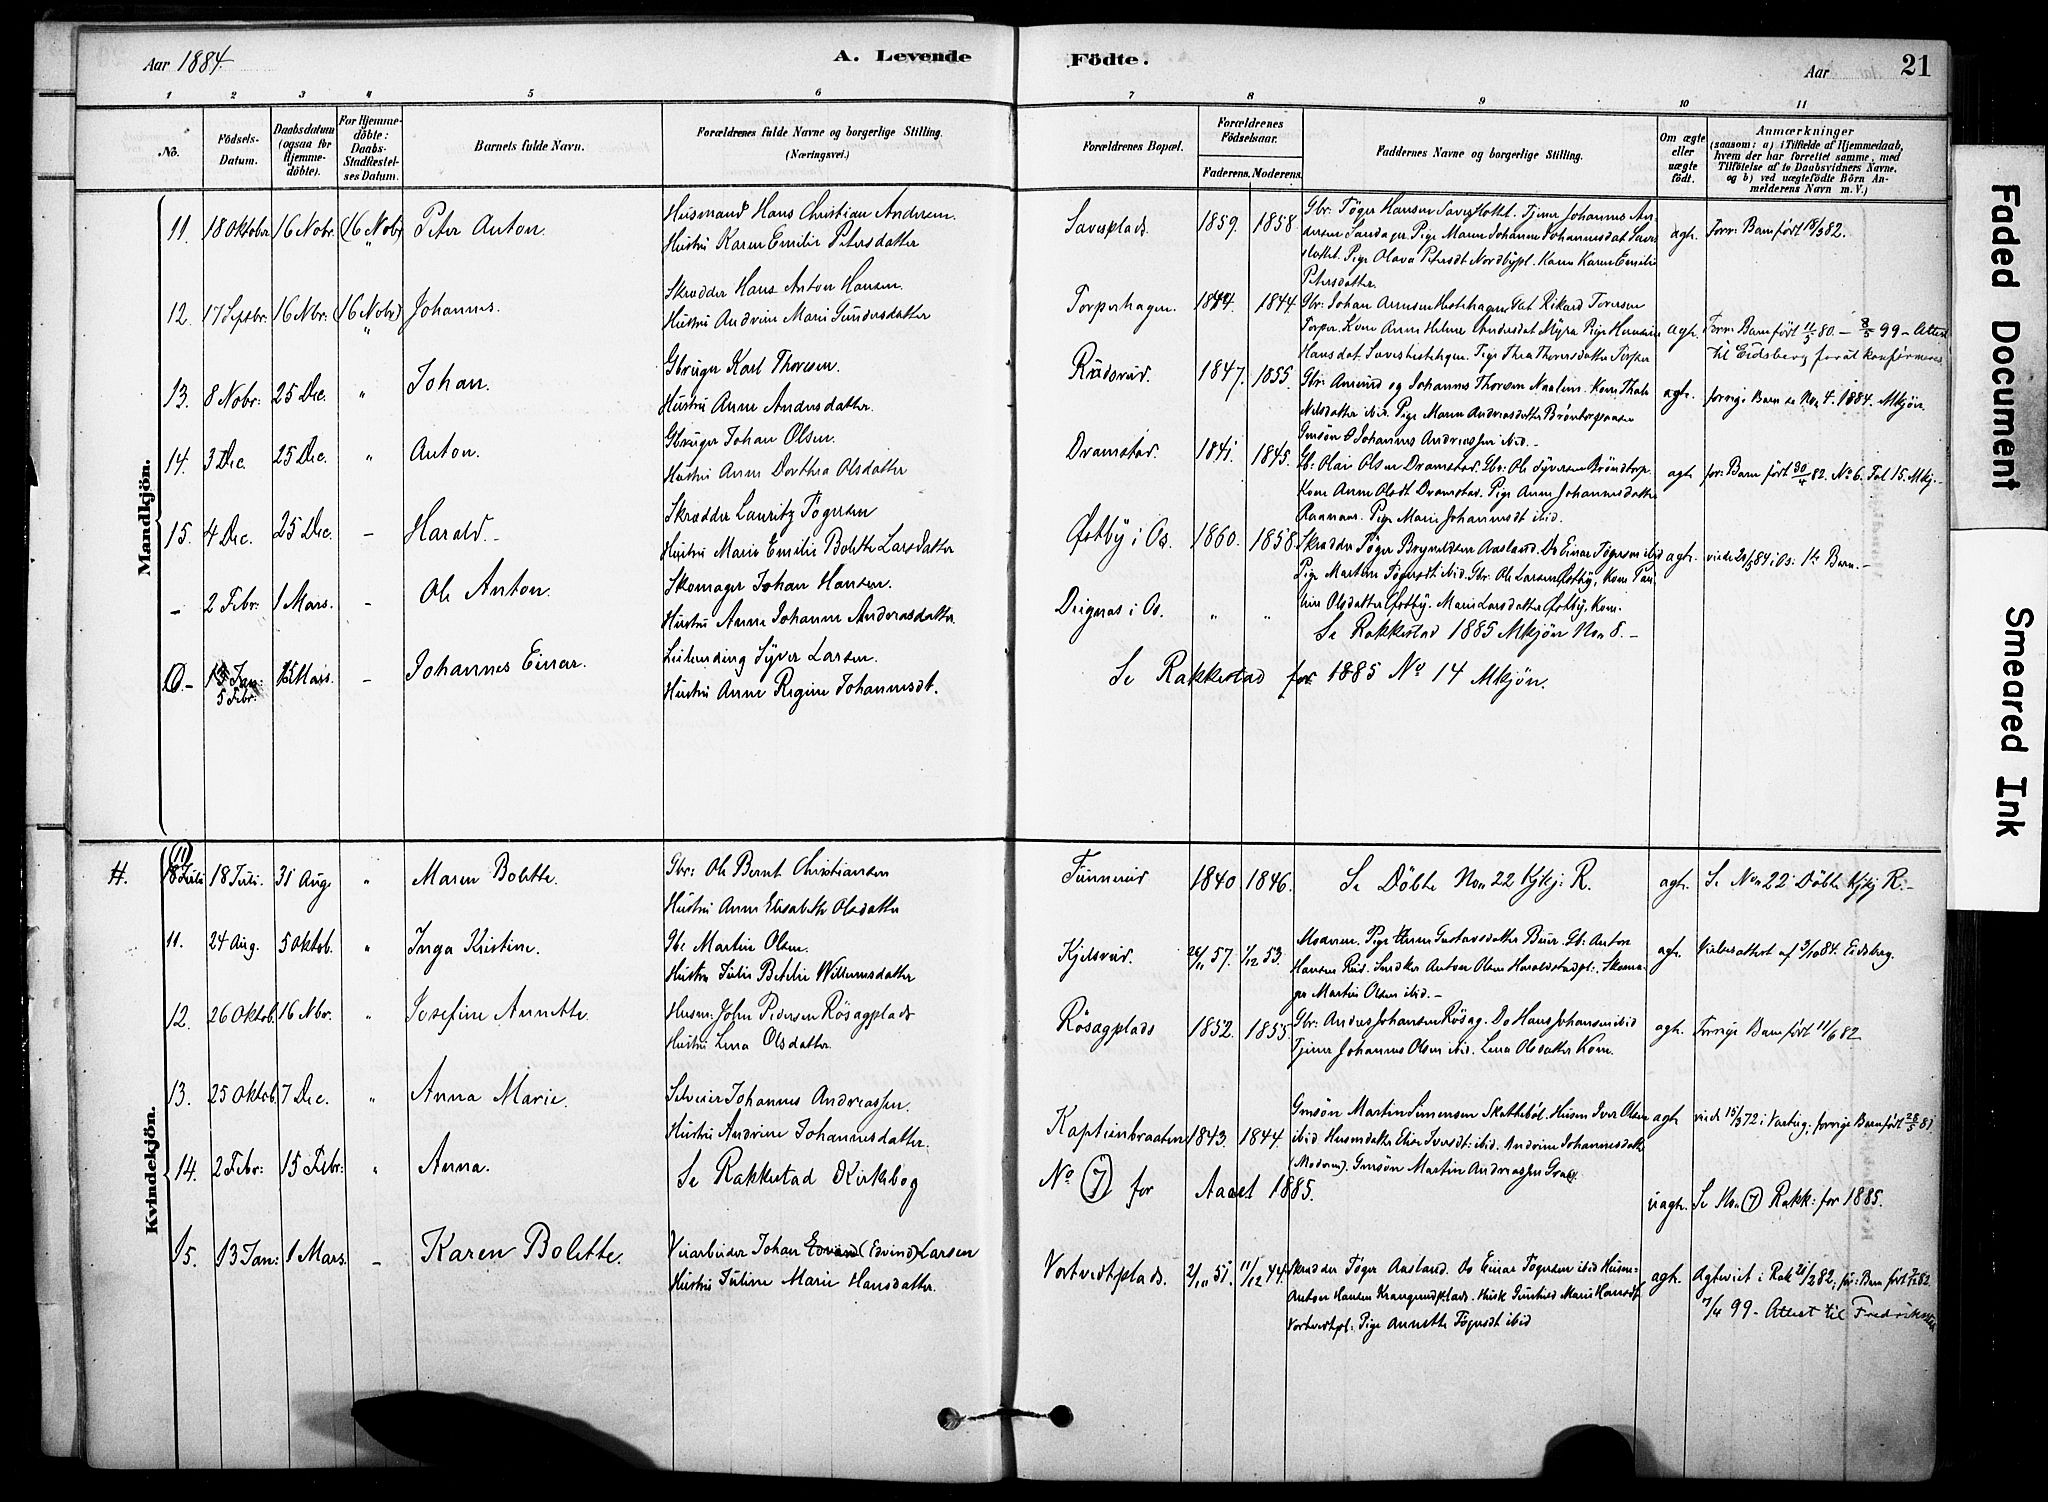 Aar 1884.
A. Levende Födte.
Aar 21
1 2 3 4 5 6 7 8 9 10 11
No.
Födsels-Datum.
Daabsdatum (ogsaa for Hjemme-döbte).
For Hjemme-döbte: Daabs-Stadfæstel-ses Datum.
Barnets fulde Navn.
Forældrenes fulde Navne og borgerlige Stilling. (Næringsvei.)
Forældrenes Bopæl.
Forældrenes Födselsaar.
Faderens. Moderens.
Faddernes Navne og borgerlige Stilling.
Om ægte eller uægte födt.
Anmærkninger (saasom: a) i Tilfælde af Hjemmedaab, hvem der har forrettet samme, med Tilföielse af to Daabsvidners Navne, og b) ved uægtefödte Börn An-melderens Navn m. V.)
Mandkjön.
11. 18 Oktober 16 Nobr. (16 Nob) " Peter Anton.
Husmand Hans Christian Andersen.
Hustru Karen Emilie Petersdatter
Savesplads. 1859. 1858.
Gbr: Töger Hansen Tjener Johannes An-
dersen Pige Maren Johanne Johannesdat
Pige Olava Petersdt Nordbypl. Kone Karen Emilie
Petersdatter.
agte. Forr: Barn fört 82.
12. 17 Septbr. 16 Nbr. (16 Nobr) " Johannes.
Skrædder Hans Anton Hansen.
Hustru Andrine Marie Gundersdatter
Torperhagen. 1844. 1844.
Gbr: Johan Arnesen Rikard Toresen
Torper. Kone Anne Helene Andersdat Myra Pige
Hansdat. Pige Thea Thoresdatter Torper
agte. Forr: Barn fört 11/5 80. - 8/5 99 - Attest
til Eidsberg for at konfirmeres
13. 8 Nobr: 25 Dec. " Johan.
Gbruger Karl Thoresen.
Hustru Anne Andersdatter.
Rudsrud. 1847. 1855.
Gbr: Amund og Johannes Thoresen Kone
Nilsdatter ibid. Pige Maren Andreasdatter
Gmsön Johannes Andreassen ibid. -
agte. forrige Barn se Non 4. 1884. Mkjön.
14. 3 Dec. 25 Dec. " Anton.
Gbruger Johan Olsen.
Hustru Anne Dorthea Olsdatter
Dramstad. 1841. 1845.
Gb: Olai Olsen Dramstad. Gbr: Ole Syversen Bröndtorp.
Kone Anne Olsdt Dramstad. Pige Anne Johannesdatter
Raanaas. Pige Marie Johannesdt ibid.
agte. for: Barn fört 30/4 82. No 6. Fol 15. Mkj.-
15. 4 Dec. 25 Dec. - Harald.-
Skrædder Lauritz Tögersen
Hustru Marie Emilie Bolette Larsdatter
Østby i Os. 1860. 1858.
Skrædder Töger Brynildsen Aasland. Do Einar Tögersen ibid
Pige Martine Tögersdt ibid. Gbr: Ole Larsen Østby, Kone
Olsdatter Østby. Marie Larsdatter Østby. Kone.
agte. viede 20/5 84 i Os: 1te Barn.-
- 2 Febr. 1 Mars. - Ole Anton.
Skomager Johan Hansen.
Hustru Anne Johanne Andreasdatter
Deignæs i Os. " "
Se Rakkestad 1885 Mkjön Non 8.-
15 Jan: 5 Febr. 15 Mars. - Johannes Einar.
Syver Larsen.
Hustru Anne Regine Johannesdt.
Se Rakkestad for 1885 No 14 Mkjön.
Kvindekjön.
H. (11) 18 Juli 18 Juli. 31 Aug " Maren Bolette.
Gbr: Ole Bernt Christiansen
Hustru Anne Elisabeth Olsdatter
1840 1846.
Se Döbte Non 22 Kjkj: R.
agte. Se Non 22 Döbte Kjkj R.-
11. 24 Aug. 5 Oktob. " Inga Kristine.
Gbr Martin Olsen.
Hustru Julie Betelie Willumsdatter
Kjelsrud. 26/11 57. 1/12 53.
Moderen. Pige Anne Gustavsdatter Buer. Gb: Anton
Hansen Rud. Snedker Anton Olsen Haraldstadpl. Skoma-
ger Martin Olsen ibid.-
agte. Vielsesattest af 3/10 84. Eidsberg.
12. 26 Oktob. 16 Nbr. " Josefine Annette.
Husm: John Pedersen Rösægplads
Hustru Lena Olsdatter
Rösægplads 1852. 1855.
Gbr: Anders Johansen Rösæg. Do Hans Johansen ibid
Tjener Johannes Olsen ibid. Lena Olsdatter Kone.
agte. Forrige Barn fört 11/6 82
13. 25 Oktob. 7 Dec. " Anna Marie.
Selveier Johannes Andreassen.
Hustru Andrine Johannesdatter.
Kapteinbraaten 1843. 1844.
Gmsön Martin Simensen Skatteböl. Husm Iver Olsen
ibid Husmdatter Elise Iversdt: ibid. Andrine Johannesdatter
(Moderen). Gmsön Martin Andreassen
agte. viede 15/3 72 i Varteig. forrige Barn fört 28/5 81
14. 2 Febr: 15 Febr: " Anna.
Se Rakkestad Kirkebog No (7) for Aaret 1885.
uagte. Se Non (7) Rakk: for 1885.
15. 13 Jan: 1 Mars. - Karen Bolette.
Veiarbeider Johan Edvard (Edvind) Larsen
Hustru Juline Marie Hansdatter.
Vortvedtplads. 2/11 51. 11/12 44.
Skrædder Töger Aasland. Do Einar Tögersen ibid Husm:
Anton Hansen Husk Gunhild Marie Hansdt
Vortvedtpl. Pige Annette Tögersdt ibid
agte. Agteviet i Rak 21/2 82. for: Barn fört 82.
7/4 99 - Attest til Fredrikstad
Faded Document
Smeared Ink